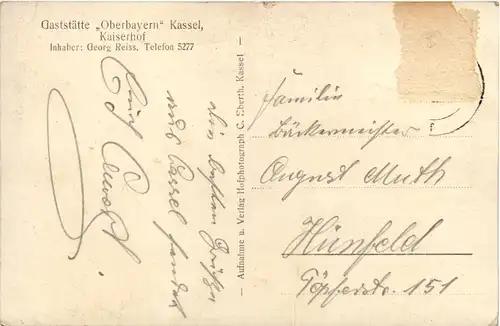 Gaststätte „Oberbayern" Kassel,
Kaiserhof
Inhaber: Georg Reiss, Telefon 5277
die besten Grüße
aus Cassel sendet
Euch
— Aufnahme u. Verlag Hofphotograph C. Eberth. Kassel —
Familie
Bäckermeister
August Muth
Hünfeld
Töpferstr. 151